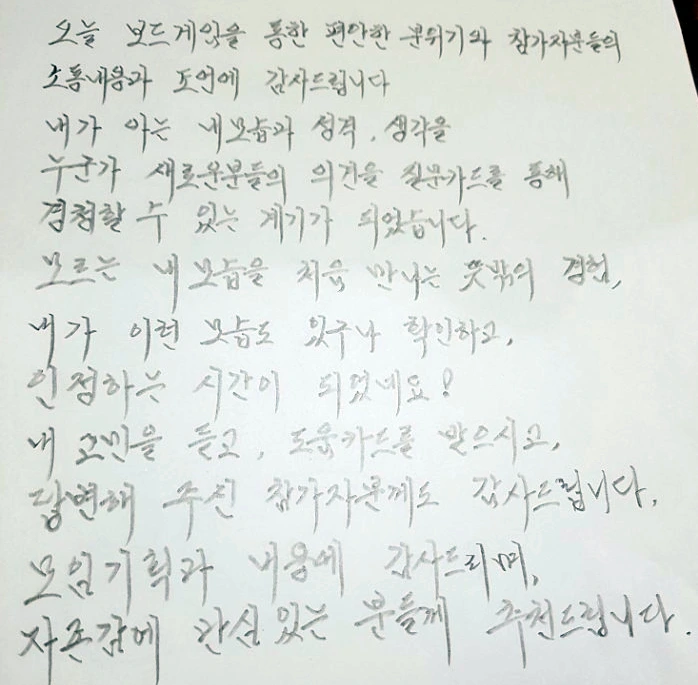 오늘 보드게임을 통한 편안한 분위기와 참가자분들의
소통내용과 조언에 감사드립니다
내가 아는 내모습과 성격, 생각을
누군가 새로운분들의 의견을 질문카드를 통해
경청할 수 있는 계기가 되었습니다.
모르는 내 모습을 처음 만나는 뜻밖의 경험,
내가 이런 모습도 있구나 확인하고,
인정하는 시간이 되었네요!
내 고민을 듣고, 도움카드를 받으시고,
답변해 주신 참가자분께도 감사드립니다.
모임기획과 내용에 감사드리며,
자존감에 관심 있는 분들께 추천드립니다.